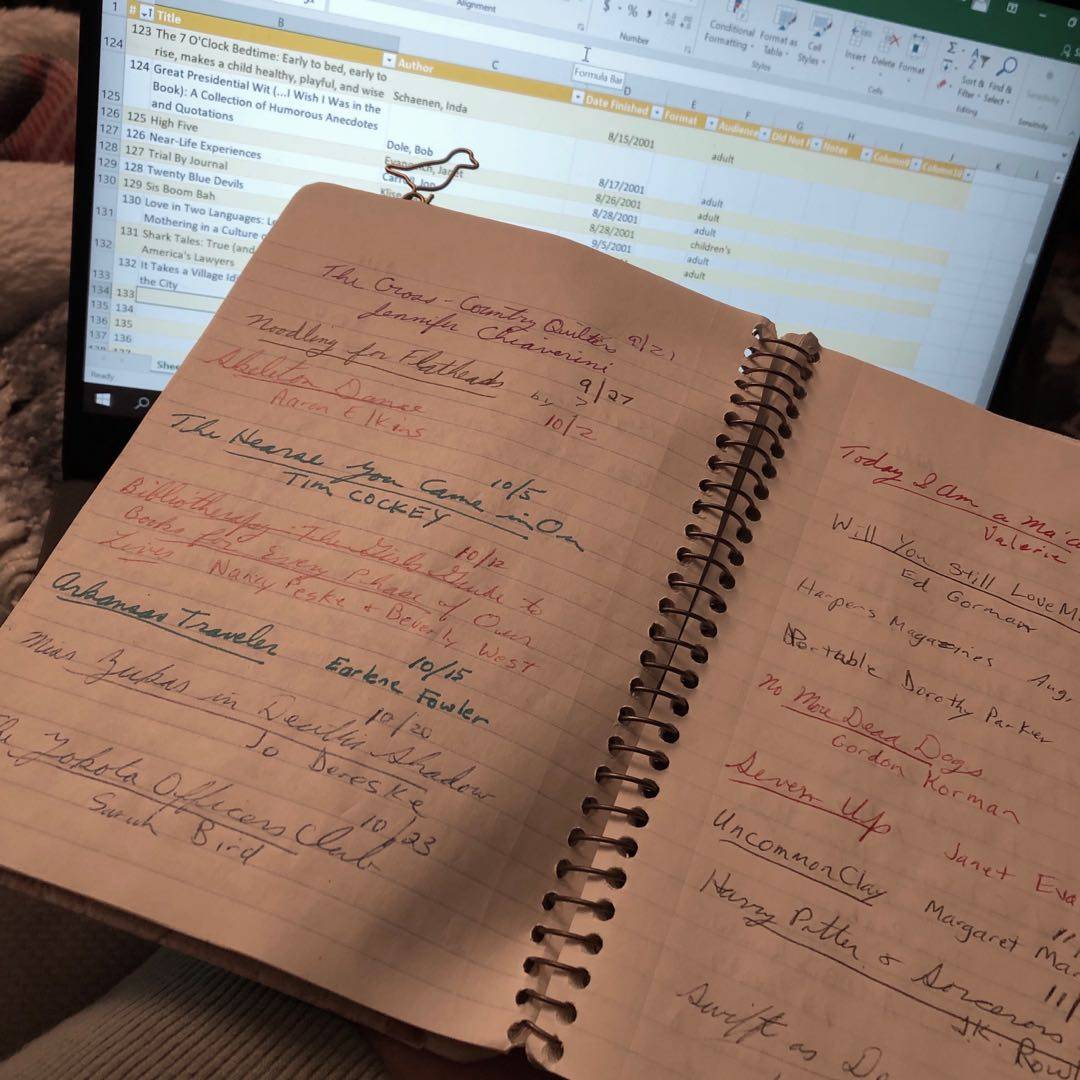 Alignment
Number
Conditional
Formatting
Format as
Table
Cell
Styles
Styles
Insert
Delete
Format
Cells
Sort & Find &
Filter Select
Editing
Sensitivity
Formula Bar
B C D E F G H I J K L
1 # Title Author Date Finished Format Audience Did Not F Notes
124 123 The 7 O'Clock Bedtime: Early to bed, early to
rise, makes a child healthy, playful, and wise Schaenen, Inda 8/15/2001 adult
125 124 Great Presidential Wit (...I Wish I Was in the
Book): A Collection of Humorous Anecdotes
and Quotations Dole, Bob 8/17/2001 adult
126 125 High Five 8/26/2001 adult
127 126 Near-Life Experiences 8/28/2001 adult
128 127 Trial By Journal 8/28/2001 children's
129 128 Twenty Blue Devils 9/5/2001 adult
130 129 Sis Boom Bah adult
131 130 Love in Two Languages:
Mothering in a Culture
132 131 Shark Tales: True (and
America's Lawyers
133 132 It Takes a Village
the City
134 133
135 134
136 135
137 136
Ready
The Cross-Country Quilters 9/21
Jennifer Chiaverini
Noodling for Flatheads 9/27
by ?
Skeleton Dance 10/2
Aaron Elkins
The Hearse You Came in On 10/5
TIM COCKEY
Bibliotherapy: The Girl's Guide to 10/12
Books for Every Phase of Our
Lives Nancy Peske & Beverly West
Arkansas Traveler 10/15
Earlene Fowler
Miss Zukas in Death's Shadow 10/20
Jo Dereske
Yokota Officers Club 10/23
Sarah Bird
Today I Am a Ma'
Valerie
Will You Still Love M
Ed Gorman
Harpers Magazines Aug,
Portable Dorothy Parker
No More Dead Dogs
Gordon Korman
Seven Up Janet Eva
Uncommon Clay Margaret Ma
11/
Harry Potter & Sorcerors
11/
J.K. Rowl
Swift as D